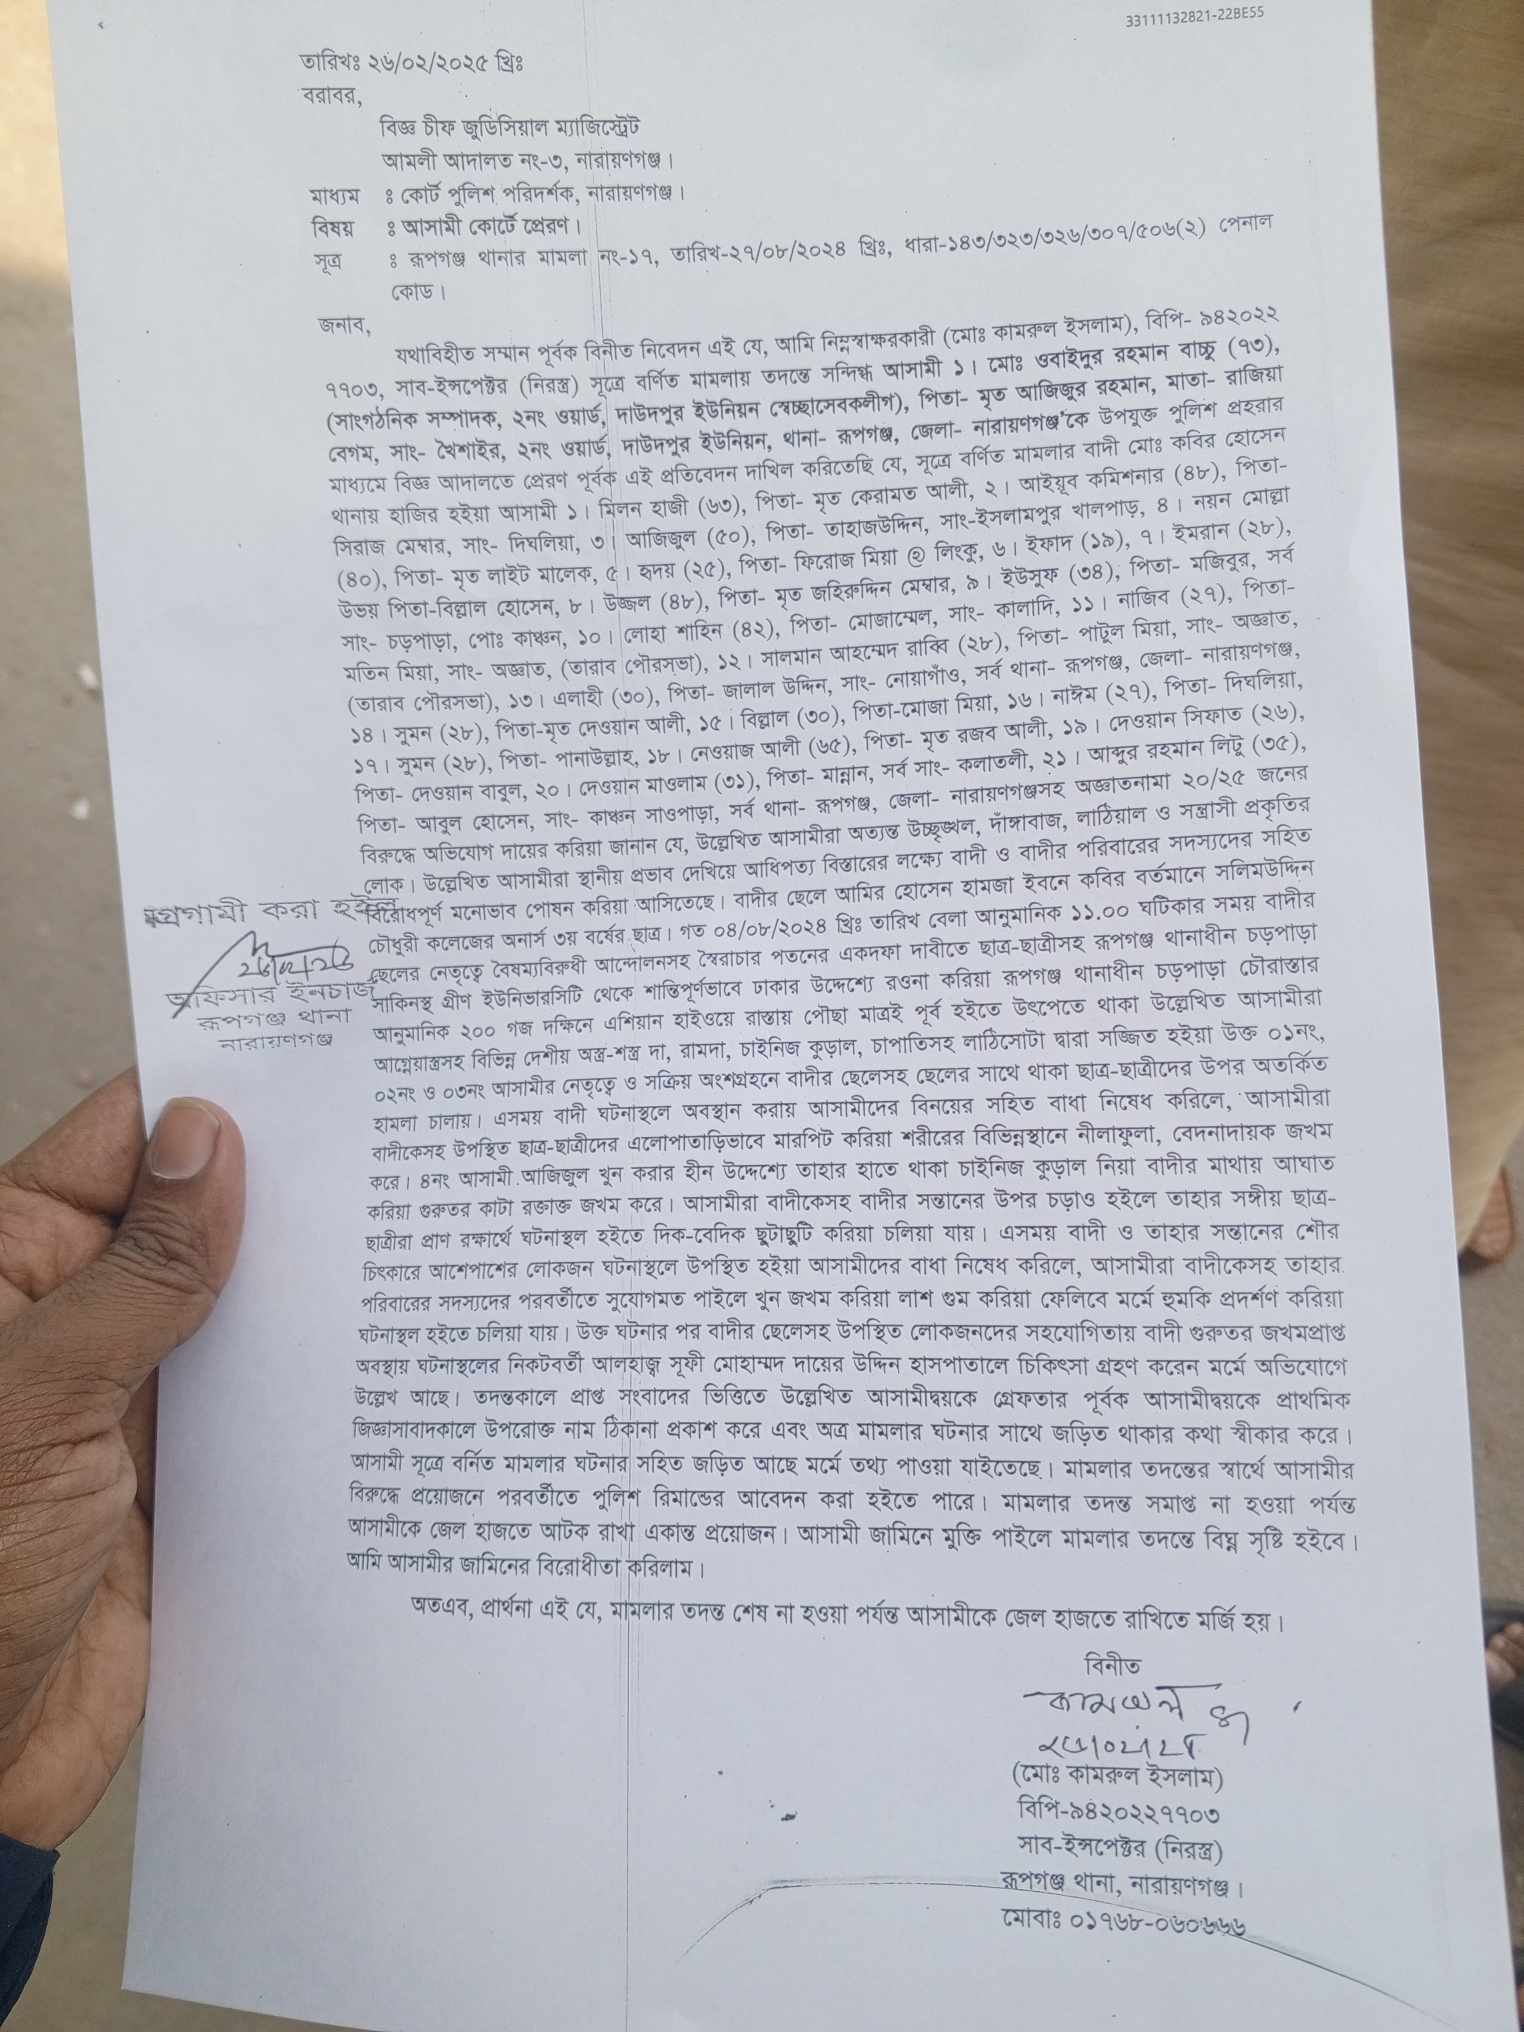 33111132821-22BE55
তারিখঃ ২৬/০২/২০২৫ খ্রিঃ
বরাবর,
বিজ্ঞ চীফ জুডিসিয়াল ম্যাজিস্ট্রেট
আমলী আদালত নং-৩, নারায়ণগঞ্জ।
মাধ্যম ঃ কোর্ট পুলিশ পরিদর্শক, নারায়ণগঞ্জ।
বিষয় ঃ আসামী কোর্টে প্রেরণ।
সূত্র ঃ রূপগঞ্জ থানার মামলা নং-১৭, তারিখ-২৭/০৮/২০২৪ খ্রিঃ, ধারা-১৪৩/৩২৩/৩২৬/৩০৭/৫০৬(২) পেনাল
কোড।
জনাব,
যথাবিহীত সম্মান পূর্বক বিনীত নিবেদন এই যে, আমি নিম্নস্বাক্ষরকারী (মোঃ কামরুল ইসলাম), বিপি- ৯৪২০২২
৭৭০৩, সাব-ইন্সপেক্টর (নিরস্ত্র) সূত্রে বর্ণিত মামলায় তদন্তে সন্দিগ্ধ আসামী ১। মোঃ ওবাইদুর রহমান বাচ্চু (৭৩),
(সাংগঠনিক সম্পাদক, ২নং ওয়ার্ড, দাউদপুর ইউনিয়ন স্বেচ্ছাসেবকলীগ), পিতা- মৃত আজিজুর রহমান, মাতা- রাজিয়া
বেগম, সাং- খৈশাইর, ২নং ওয়ার্ড, দাউদপুর ইউনিয়ন, থানা- রূপগঞ্জ, জেলা- নারায়ণগঞ্জ'কে উপযুক্ত পুলিশ প্রহরার
মাধ্যমে বিজ্ঞ আদালতে প্রেরণ পূর্বক এই প্রতিবেদন দাখিল করিতেছি যে, সূত্রে বর্ণিত মামলার বাদী মোঃ কবির হোসেন
থানায় হাজির হইয়া আসামী ১। মিলন হাজী (৬৩), পিতা- মৃত কেরামত আলী, ২। আইয়ূব কমিশনার (৪৮), পিতা-
সিরাজ মেম্বার, সাং- দিঘলিয়া, ৩। আজিজুল (৫০), পিতা- তাহাজউদ্দিন, সাং-ইসলামপুর খালপাড়, ৪। নয়ন মোল্লা
(৪০), পিতা- মৃত লাইট মালেক, ৫। হৃদয় (২৫), পিতা- ফিরোজ মিয়া @ লিংকু, ৬। ইফাদ (১৯), ৭। ইমরান (২৮),
উভয় পিতা-বিল্লাল হোসেন, ৮। উজ্জল (৪৮), পিতা- মৃত জহিরুদ্দিন মেম্বার, ৯। ইউসুফ (৩৪), পিতা- মজিবুর, সর্ব
সাং- চড়পাড়া, পোঃ কাঞ্চন, ১০। লোহা শাহিন (৪২), পিতা- মোজাম্মেল, সাং- কালাদি, ১১। নাজিব (২৭), পিতা-
মতিন মিয়া, সাং- অজ্ঞাত, (তারাব পৌরসভা), ১২। সালমান আহম্মেদ রাব্বি (২৮), পিতা- পাটুল মিয়া, সাং- অজ্ঞাত,
(তারাব পৌরসভা), ১৩। এলাহী (৩০), পিতা- জালাল উদ্দিন, সাং- নোয়াগাঁও, সর্ব থানা- রূপগঞ্জ, জেলা- নারায়ণগঞ্জ,
১৪। সুমন (২৮), পিতা-মৃত দেওয়ান আলী, ১৫। বিল্লাল (৩০), পিতা-মোজা মিয়া, ১৬। নাঈম (২৭), পিতা- দিঘলিয়া,
১৭। সুমন (২৮), পিতা- পানাউল্লাহ, ১৮। নেওয়াজ আলী (৬৫), পিতা- মৃত রজব আলী, ১৯। দেওয়ান সিফাত (২৬),
পিতা- দেওয়ান বাবুল, ২০। দেওয়ান মাওলাম (৩১), পিতা- মান্নান, সর্ব সাং- কলাতলী, ২১। আব্দুর রহমান লিটু (৩৫),
পিতা- আবুল হোসেন, সাং- কাঞ্চন সাওপাড়া, সর্ব থানা- রূপগঞ্জ, জেলা- নারায়ণগঞ্জসহ অজ্ঞাতনামা ২০/২৫ জনের
বিরুদ্ধে অভিযোগ দায়ের করিয়া জানান যে, উল্লেখিত আসামীরা অত্যন্ত উচ্ছৃঙ্খল, দাঁঙ্গাবাজ, লাঠিয়াল ও সন্ত্রাসী প্রকৃতির
লোক। উল্লেখিত আসামীরা স্থানীয় প্রভাব দেখিয়ে আধিপত্য বিস্তারের লক্ষ্যে বাদী ও বাদীর পরিবারের সদস্যদের সহিত
বিরোধপূর্ণ মনোভাব পোষন করিয়া আসিতেছে। বাদীর ছেলে আমির হোসেন হামজা ইবনে কবির বর্তমানে সলিমউদ্দিন
চৌধুরী কলেজের অনার্স ৩য় বর্ষের ছাত্র। গত ০৪/০৮/২০২৪ খ্রিঃ তারিখ বেলা আনুমানিক ১১.০০ ঘটিকার সময় বাদীর
ছেলের নেতৃত্বে বৈষম্যবিরুধী আন্দোলনসহ স্বৈরাচার পতনের একদফা দাবীতে ছাত্র-ছাত্রীসহ রূপগঞ্জ থানাধীন চড়পাড়া
সাকিনস্থ গ্রীণ ইউনিভারসিটি থেকে শান্তিপূর্ণভাবে ঢাকার উদ্দেশ্যে রওনা করিয়া রূপগঞ্জ থানাধীন চড়পাড়া চৌরাস্তার
আনুমানিক ২০০ গজ দক্ষিনে এশিয়ান হাইওয়ে রাস্তায় পৌছা মাত্রই পূর্ব হইতে উৎপেতে থাকা উল্লেখিত আসামীরা
আগ্নেয়াস্ত্রসহ বিভিন্ন দেশীয় অস্ত্র-শস্ত্র দা, রামদা, চাইনিজ কুড়াল, চাপাতিসহ লাঠিসোটা দ্বারা সজ্জিত হইয়া উক্ত ০১নং,
০২নং ও ০৩নং আসামীর নেতৃত্বে ও সক্রিয় অংশগ্রহনে বাদীর ছেলেসহ ছেলের সাথে থাকা ছাত্র-ছাত্রীদের উপর অতর্কিত
হামলা চালায়। এসময় বাদী ঘটনাস্থলে অবস্থান করায় আসামীদের বিনয়ের সহিত বাধা নিষেধ করিলে, আসামীরা
বাদীকেসহ উপস্থিত ছাত্র-ছাত্রীদের এলোপাতাড়িভাবে মারপিট করিয়া শরীরের বিভিন্নস্থানে নীলাফুলা, বেদনাদায়ক জখম
করে। ৪নং আসামী আজিজুল খুন করার হীন উদ্দেশ্যে তাহার হাতে থাকা চাইনিজ কুড়াল নিয়া বাদীর মাথায় আঘাত
করিয়া গুরুতর কাটা রক্তাক্ত জখম করে। আসামীরা বাদীকেসহ বাদীর সন্তানের উপর চড়াও হইলে তাহার সঙ্গীয় ছাত্র-
ছাত্রীরা প্রাণ রক্ষার্থে ঘটনাস্থল হইতে দিক-বেদিক ছুটাছুটি করিয়া চলিয়া যায়। এসময় বাদী ও তাহার সন্তানের শৌর
চিৎকারে আশেপাশের লোকজন ঘটনাস্থলে উপস্থিত হইয়া আসামীদের বাধা নিষেধ করিলে, আসামীরা বাদীকেসহ তাহার
পরিবারের সদস্যদের পরবর্তীতে সুযোগমত পাইলে খুন জখম করিয়া লাশ গুম করিয়া ফেলিবে মর্মে হুমকি প্রদর্শণ করিয়া
ঘটনাস্থল হইতে চলিয়া যায়। উক্ত ঘটনার পর বাদীর ছেলেসহ উপস্থিত লোকজনদের সহযোগিতায় বাদী গুরুতর জখমপ্রাপ্ত
অবস্থায় ঘটনাস্থলের নিকটবর্তী আলহাজ্ব সূফী মোহাম্মদ দায়ের উদ্দিন হাসপাতালে চিকিৎসা গ্রহণ করেন মর্মে অভিযোগে
উল্লেখ আছে। তদন্তকালে প্রাপ্ত সংবাদের ভিত্তিতে উল্লেখিত আসামীদ্বয়কে গ্রেফতার পূর্বক আসামীদ্বয়কে প্রাথমিক
জিজ্ঞাসাবাদকালে উপরোক্ত নাম ঠিকানা প্রকাশ করে এবং অত্র মামলার ঘটনার সাথে জড়িত থাকার কথা স্বীকার করে।
আসামী সূত্রে বর্নিত মামলার ঘটনার সহিত জড়িত আছে মর্মে তথ্য পাওয়া যাইতেছে। মামলার তদন্তের স্বার্থে আসামীর
বিরুদ্ধে প্রয়োজনে পরবর্তীতে পুলিশ রিমান্ডের আবেদন করা হইতে পারে। মামলার তদন্ত সমাপ্ত না হওয়া পর্যন্ত
আসামীকে জেল হাজতে আটক রাখা একান্ত প্রয়োজন। আসামী জামিনে মুক্তি পাইলে মামলার তদন্তে বিঘ্ন সৃষ্টি হইবে।
আমি আসামীর জামিনের বিরোধীতা করিলাম।
অতএব, প্রার্থনা এই যে, মামলার তদন্ত শেষ না হওয়া পর্যন্ত আসামীকে জেল হাজতে রাখিতে মর্জি হয়।
অগ্রগামী করা হইল
২৬/০২/২৫
অফিসার ইনচার্জ
রূপগঞ্জ থানা
নারায়ণগঞ্জ
বিনীত
কামরুল
২৬/০২/২৫
(মোঃ কামরুল ইসলাম)
বিপি-৯৪২০২২৭৭০৩
সাব-ইন্সপেক্টর (নিরস্ত্র)
রূপগঞ্জ থানা, নারায়ণগঞ্জ।
মোবাঃ ০১৭৬৮-০৬০৬৬৬